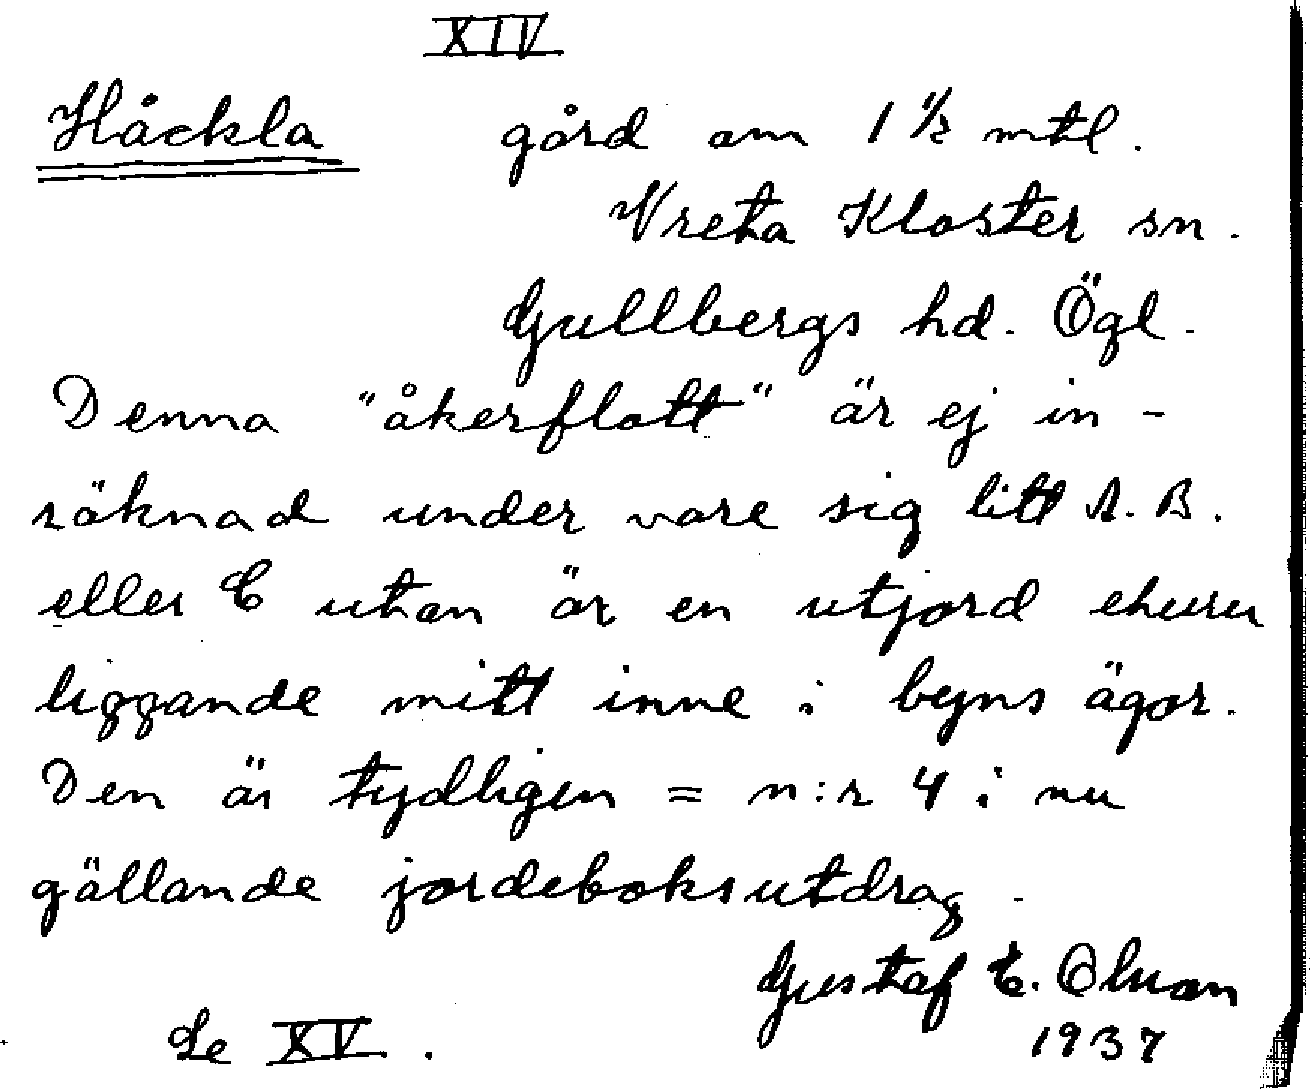 XIV
Håckla gård om 1 1/2 mtl.
Vreta Kloster sn.
Gullbergs hd. Ögl.
Denna "åkerflott" är ej in-
räknad under vare sig litt A. B.
eller C utan är en utjord ehuru
liggande mitt inne i byns ägor.
Den är tydligen = n:r 4 i nu
gällande jordeboksutdrag.
Gustaf E. Olsson
1937
Se XV.